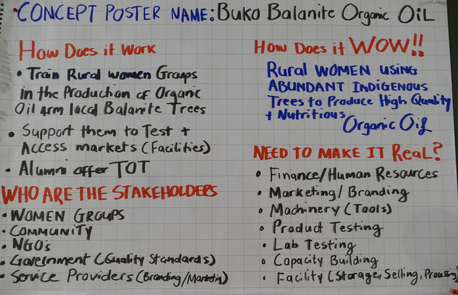 CONCEPT POSTER NAME: BUKO Balanite Organic OIL
How Does it Work
• Train Rural women Groups
in the Production of Organic
Oil arm local Balanite Trees
• Support them to Test +
Access markets (Facilities)
• Alumni offer TOT
WHO ARE THE STAKEHOLDERS
• WOMEN GROUPS
• COMMUNITY
• NGOs
• Government (Quality Standards)
• Service Providers (Branding/Marketing)
How Does it WOW!!
Rural WOMEN USING
ABUNDANT INDIGENOUS
Trees to Produce High Quality
+ Nutritious
Organic Oil
NEED TO MAKE IT ReaL?
• Finance/Human Resources
• Marketing/Branding
• Machinery (Tools)
• Product Testing
• Lab Testing
• Capacity Building
• Facility (Storage, Selling, Processing)